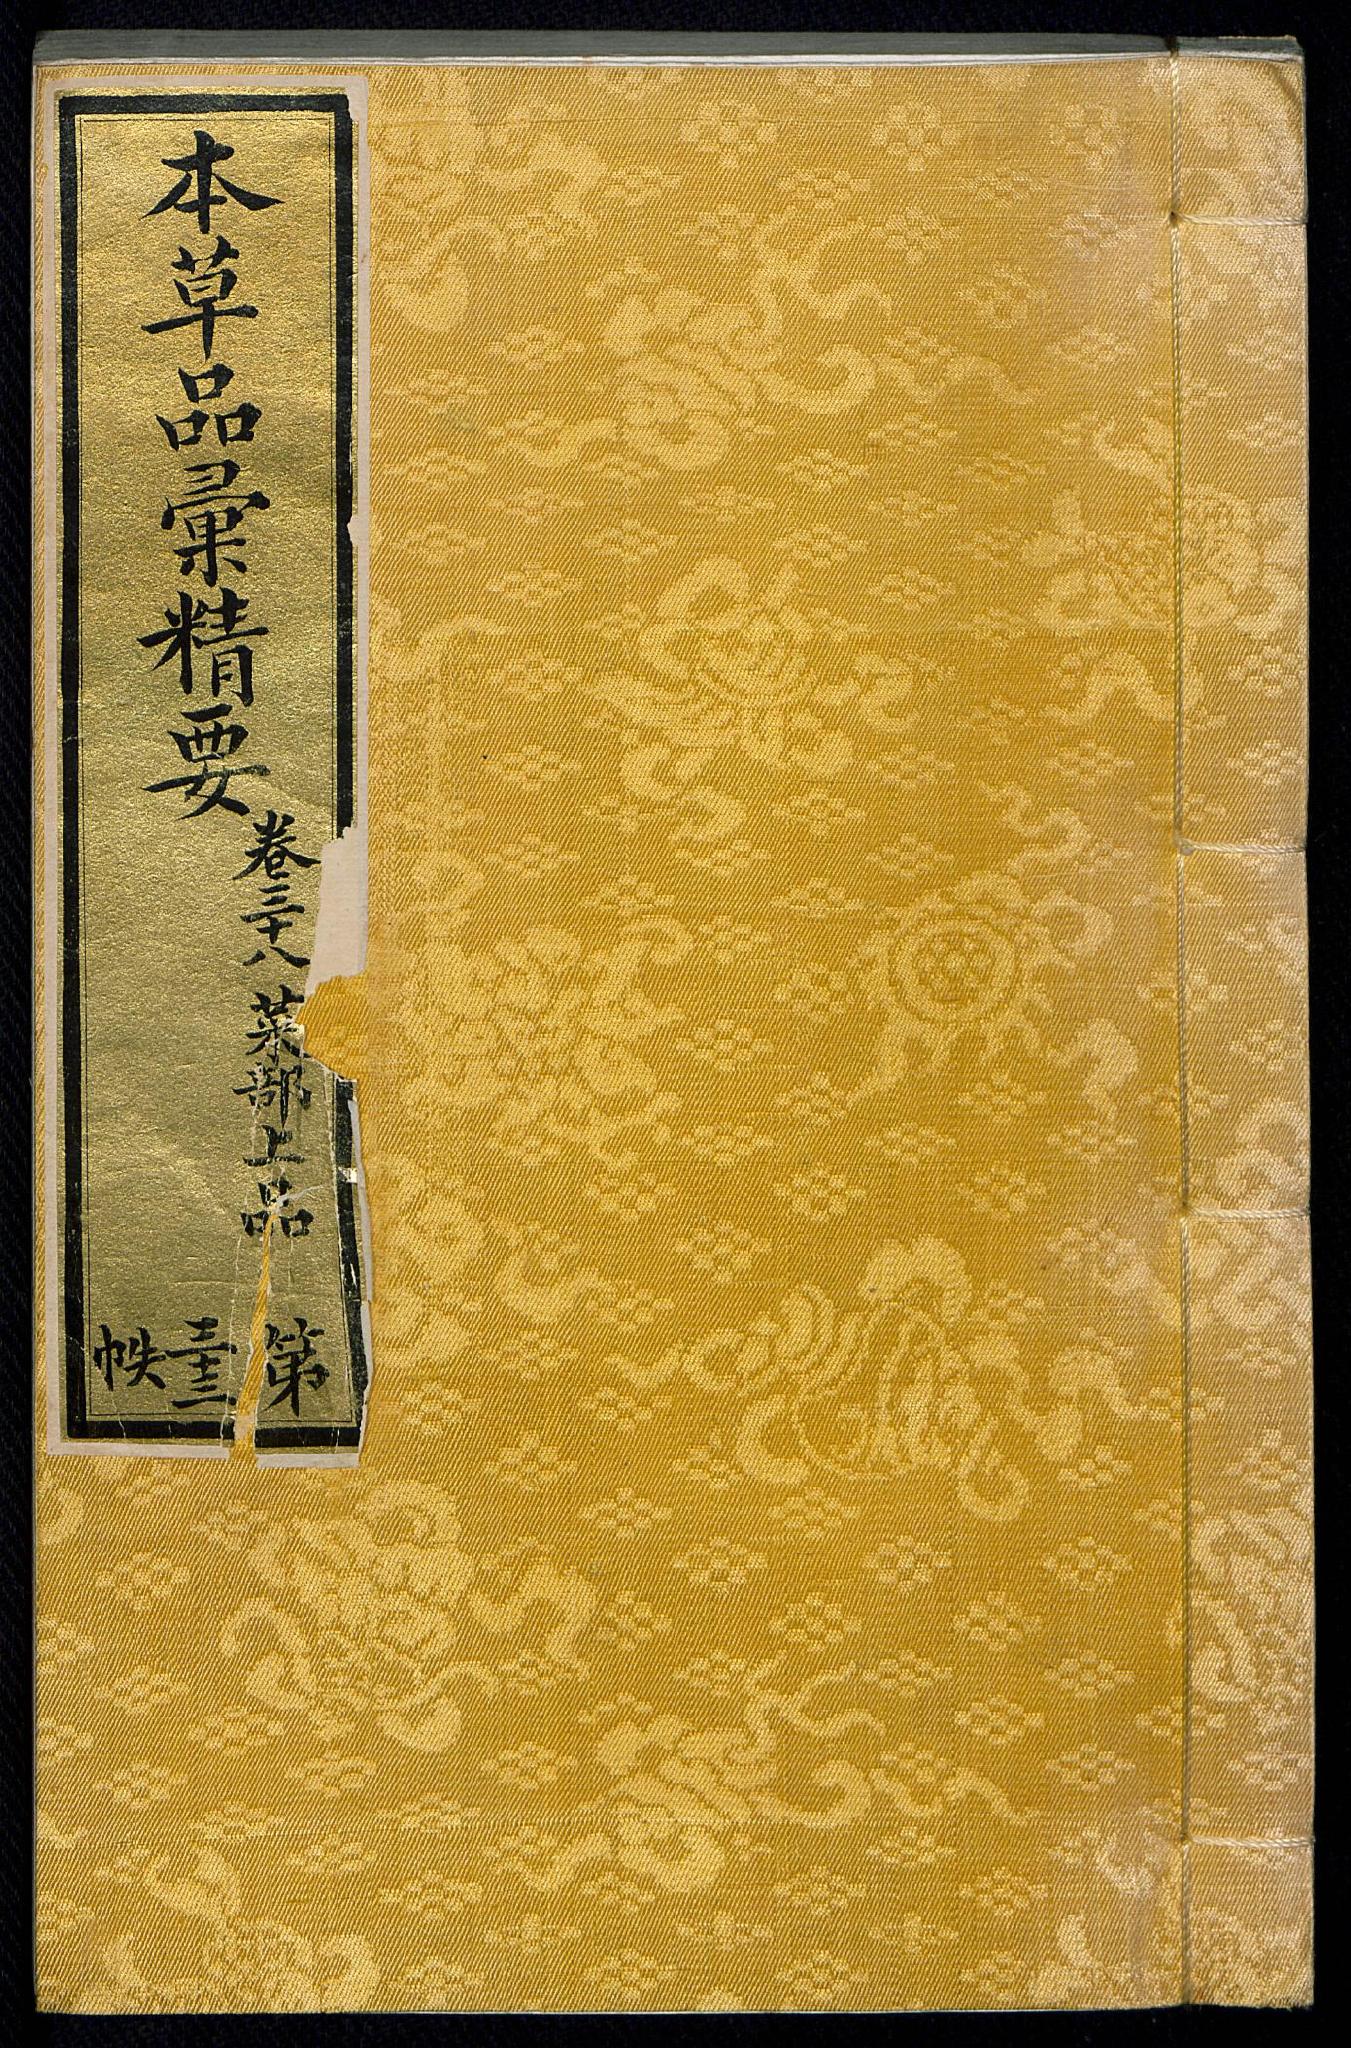 本草品彙精要
卷三十八 菜部上品
第
三十三
帙